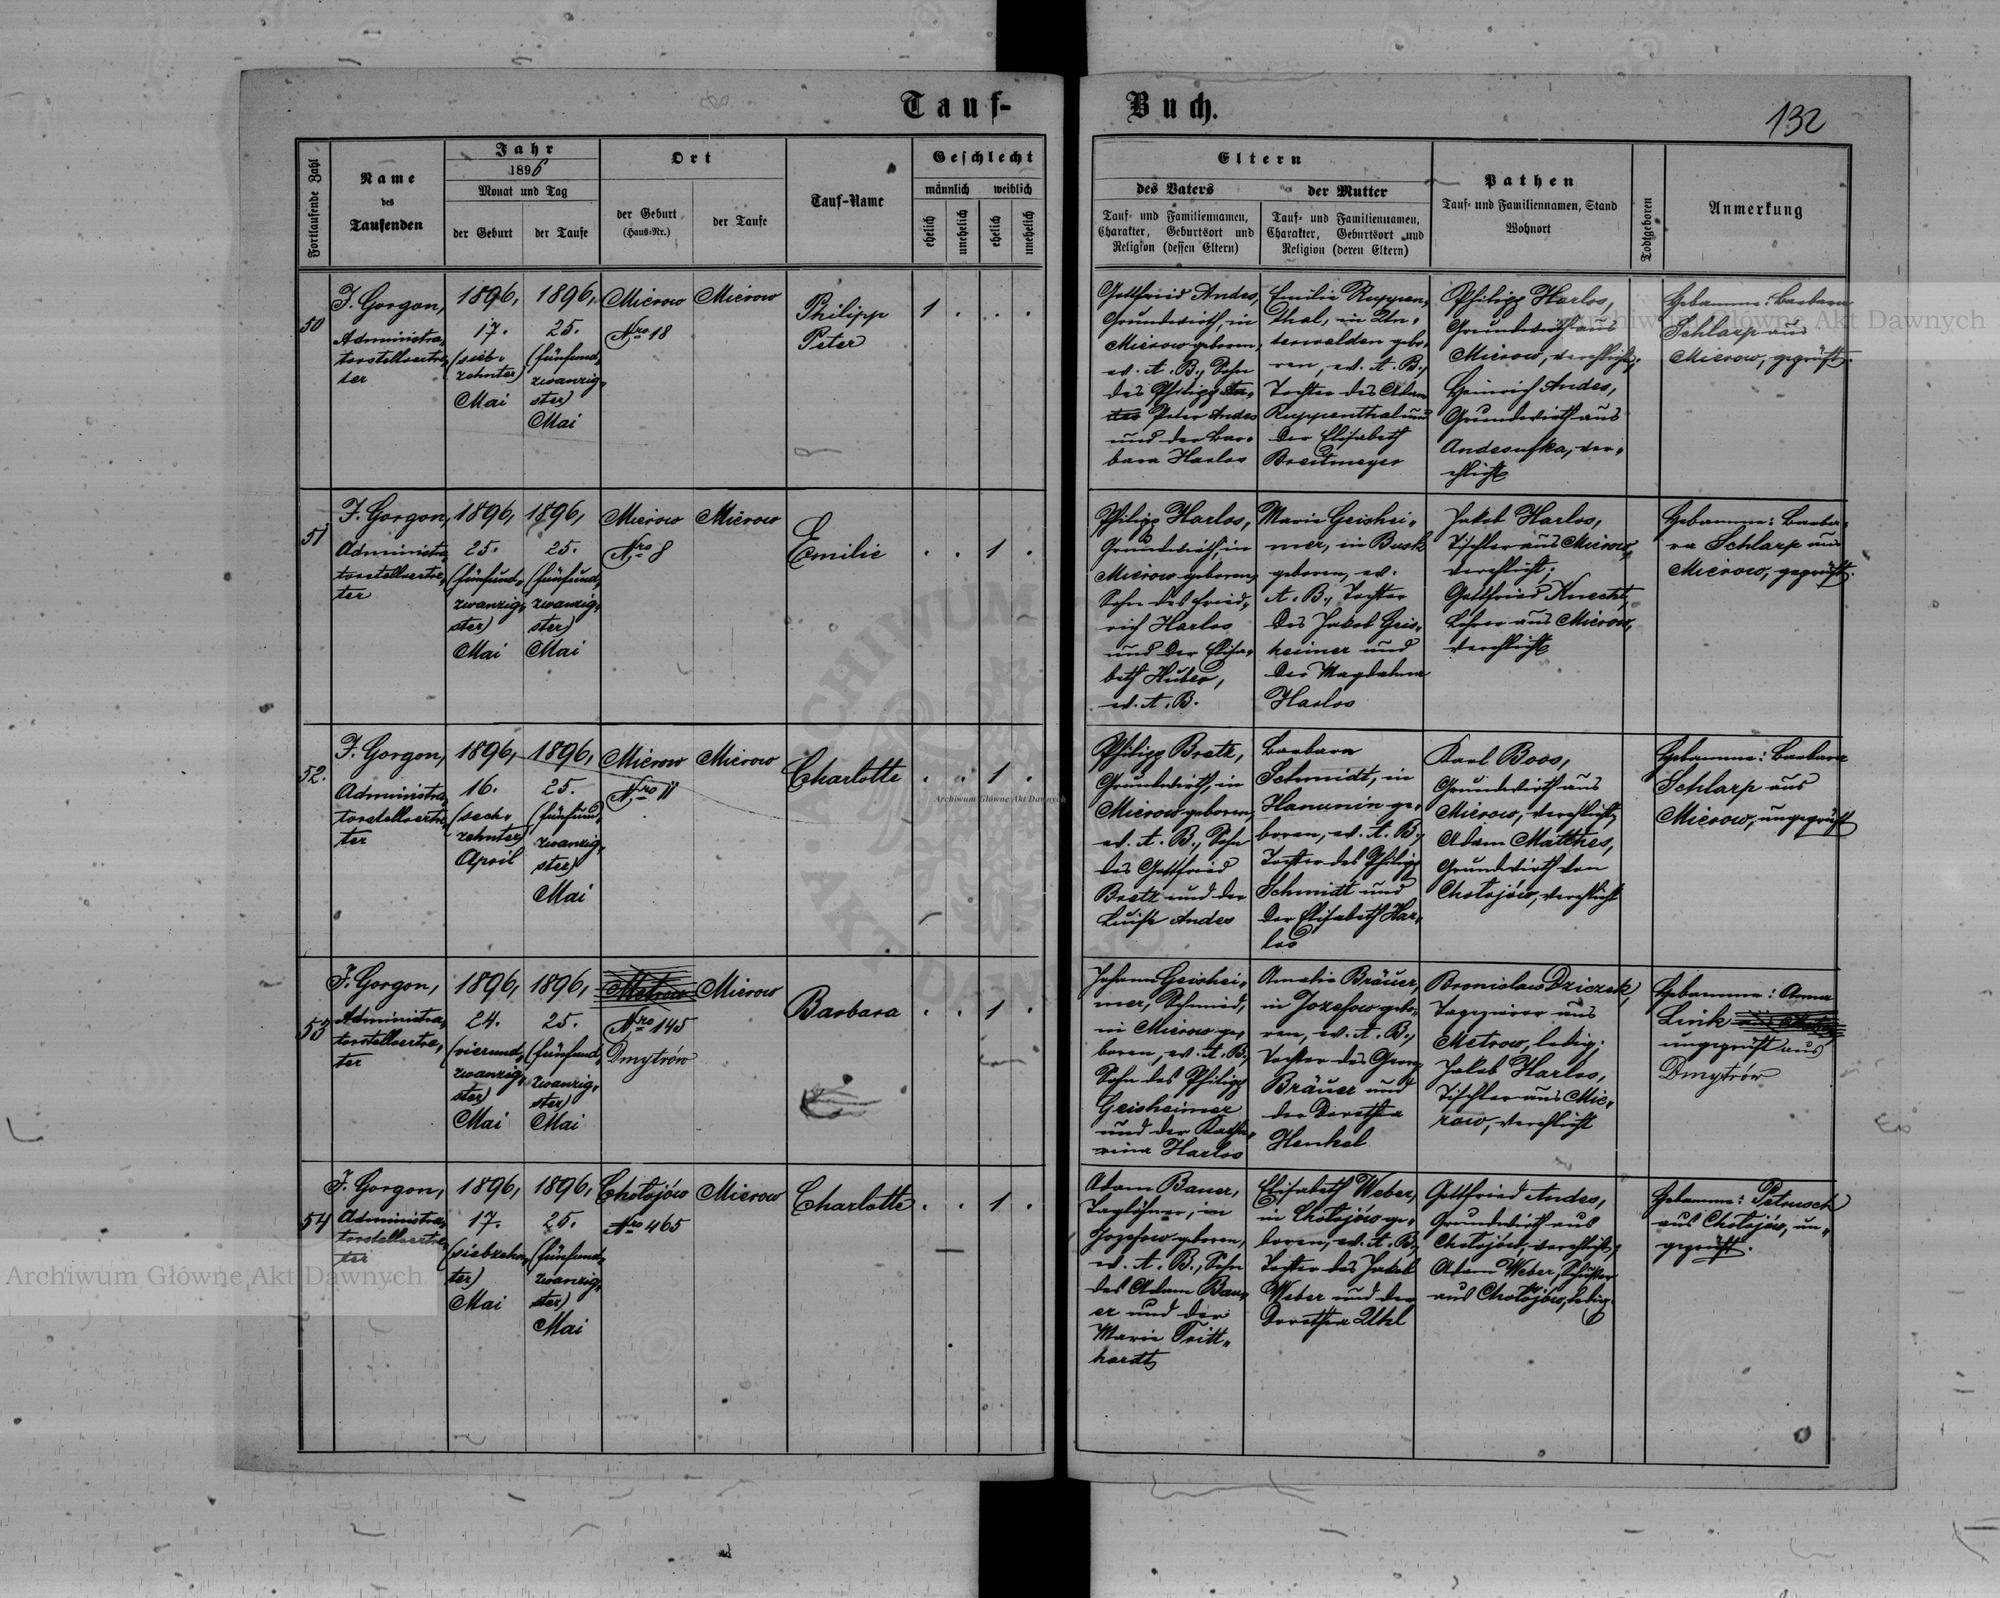 Tauf-Buch.
132
Fortlaufende Zahl
Name
des
Taufenden
Jahr
1896
Monat und Tag
der Geburt
der Taufe
Ort
der Geburt
(Haus-Nr.)
der Taufe
Tauf-Name
Geschlecht
männlich
weiblich
ehelich
unehelich
ehelich
unehelich
Eltern
des Vaters
Tauf- und Familiennamen,
Charakter, Geburtsort und
Religion (dessen Eltern)
der Mutter
Tauf- und Familiennamen,
Charakter, Geburtsort und
Religion (deren Eltern)
Pathen
Tauf- und Familiennamen, Stand
Wohnort
Todtgeboren
Anmerkung
50
F. Gorgon,
Administra,
torstellvertre,
ter
1896,
17.
(sieb-
zehnter)
Mai
1896,
25.
(fünfund,
zwanzig,
ster)
Mai
Mierow
Nro 18
Mierow
Philipp
Peter
1 . . .
Gottfried Andes,
Grundwirth, in
Mierow geboren,
ev. A. B., Sohn
des Philipp An-
des Peter Andes
und der Bar-
bara Harlos
Emilie Ruppen,
thal, in Un-
terwalden gebo-
ren, ev. A. B.,
Tochter des Adam
Ruppenthal und
der Elisabeth
Breitmeyer
Philipp Harlos,
Grundwirth aus
Mierow, verehlicht;
Heinrich Andes,
Grundwirth aus
Andesufka, ver-
ehlicht
Hebamme: Barbara
Schlarp aus
Mierow, geprüft.
51
F. Gorgon,
Administra,
torstellvertre,
ter
1896,
25.
(fünfund,
zwanzig,
ster)
Mai
1896,
25.
(fünfund,
zwanzig,
ster)
Mai
Mierow
Nro 8
Mierow
Emilie
. . 1 .
Philipp Harlos,
Grundwirth, in
Mierow geboren,
Sohn des Fried,
rich Harlos
und der Elisa-
beth Huber,
ev. A. B.
Marie Geishei-
mer, in Busk
geboren, ev.
A. B., Tochter
des Jakob Geis-
heimer und
der Magdalena
Harlos
Jakob Harlos,
Tischler aus Mierow,
verehlicht;
Gottfried Knecht,
Lehrer aus Mierow,
verehlicht
Hebamme: Barba-
ra Schlarp aus
Mierow, geprüft.
52.
F. Gorgon,
Administra,
torstellvertre,
ter
1896,
16.
(sech-
zehnter)
April
1896,
25.
(fünfund,
zwanzig,
ster)
Mai
Mierow
Nro 11
Mierow
Charlotte
. . 1 .
Philipp Bretz,
Grundwirth, in
Mierow geboren,
ev. A. B., Sohn
des Gottfried
Bretz und der
Luise Andes
Barbara
Schmidt, in
Hanunin ge-
boren, ev. A. B.,
Tochter des Philipp
Schmidt und
der Elisabeth Har-
los
Karl Boos,
Grundwirth aus
Mierow, verehlicht;
Adam Matthes,
Grundwirth von
Chotojów, verehlicht
Hebamme: Barbara
Schlarp aus
Mierow, ungeprüft
53
F. Gorgon,
Administra,
torstellvertre,
ter
1896,
24.
(vierund,
zwanzig,
ster)
Mai
1896,
25.
(fünfund,
zwanzig,
ster)
Mai
Metrow
Nro 145
Dmytrów
Mierow
Barbara
. . 1 .
Johann Geishei-
mer, Schmied,
in Mierow ge-
boren, ev. A. B.,
Sohn des Philipp
Geisheimer
und der Katha-
rina Harlos
Amalie Bräuer,
in Jozefow gebo-
ren, ev. A. B.,
Tochter des Georg
Bräuer und
der Dorothea
Henkel
Bronislaw Dziczek,
Tapezierer aus
Metrow, ledig;
Jakob Harlos,
Tischler aus Mie-
row, verehlicht
Hebamme: Anna
Link
ungeprüft aus
Dmytrów
54
F. Gorgon,
Administra,
torstellvertre,
ter
1896,
17.
(siebzehn,
ter)
Mai
1896,
25.
(fünfund,
zwanzig,
ster)
Mai
Chotojów
Nro 465
Mierow
Charlotte
. . 1 .
Adam Bauer,
Taglöhner, in
Jozefow geboren,
ev. A. B., Sohn
des Adam Bau-
er und der
Marie Tritt-
hardt
Elisabeth Weber,
in Chotojów ge-
boren, ev. A. B.,
Tochter des Jakob
Weber und der
Dorothea Uhl
Gottfried Andes,
Grundwirth aus
Chotojów, verehlicht;
Adam Weber, Schuster
aus Chotojów, ledig.
Hebamme: Petrusch
aus Chotojów, un-
geprüft.
Archiwum Główne Akt Dawnych
Archiwum Główne Akt Dawnych
Archiwum Główne Akt Dawnych